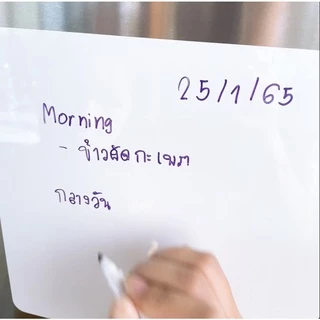 25/1/65
Morning
- ข้าวผัดกะเพรา
กลางวัน